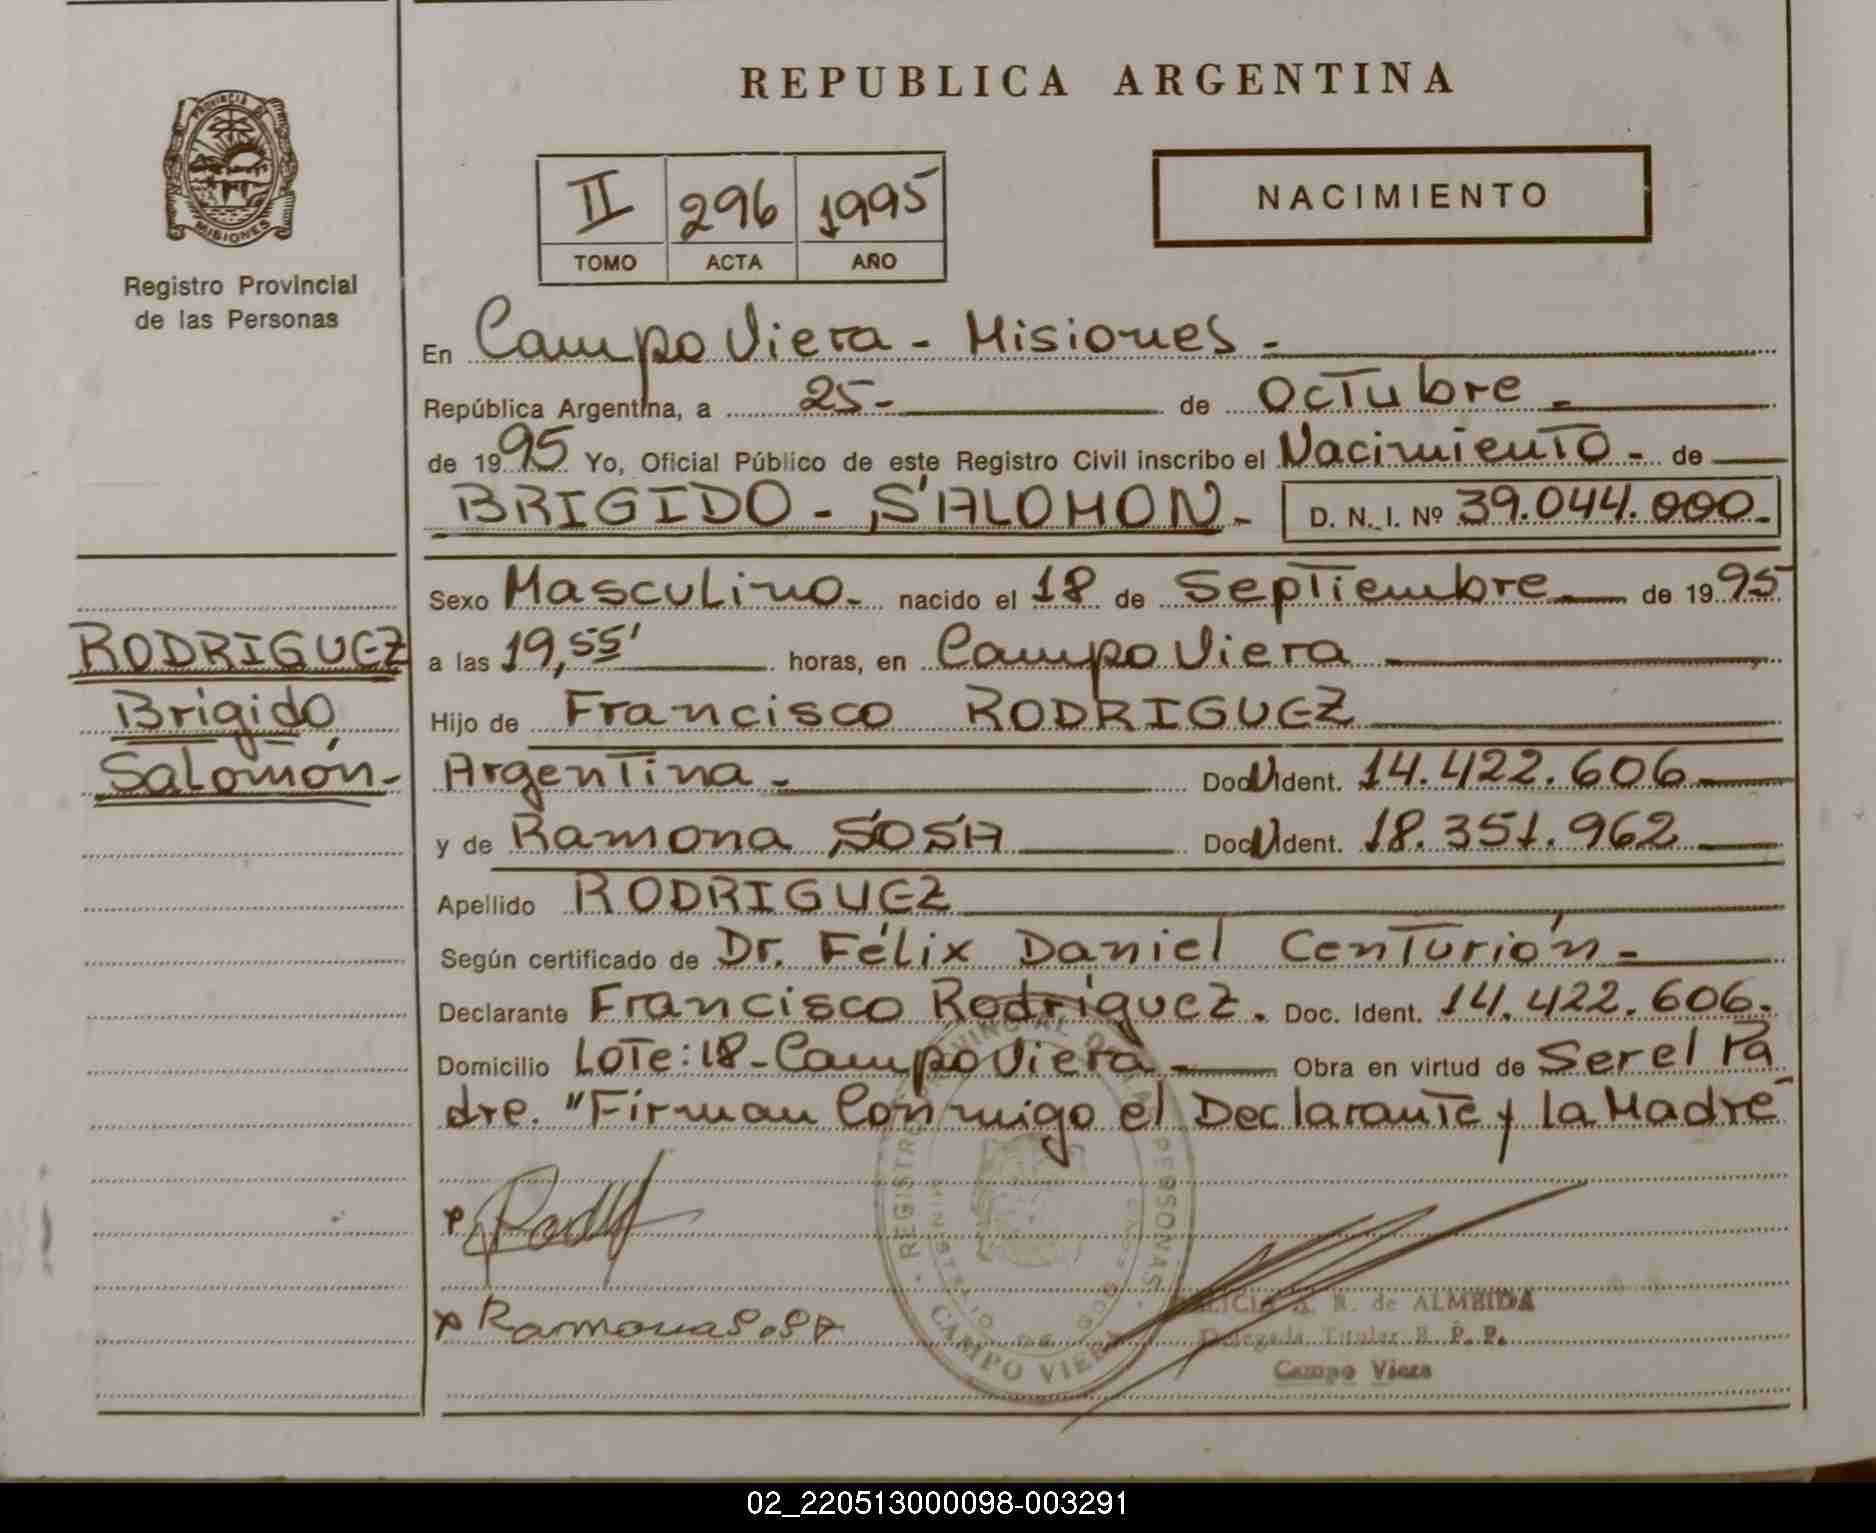 REPUBLICA ARGENTINA
PROVINCIA DE
MISIONES
Registro Provincial
de las Personas
II 296 1995
TOMO ACTA AÑO
NACIMIENTO
En Campo Viera - Misiones -
República Argentina, a 25 - de Octubre -
de 1995 Yo, Oficial Público de este Registro Civil inscribo el Nacimiento - de
BRIGIDO - SALOMON - D. N. I. Nº 39.044.000 -
Sexo Masculino - nacido el 18 de Septiembre de 1995
RODRIGUEZ
Brigido
Salomón -
a las 19,55' horas, en Campo Viera
Hijo de Francisco RODRIGUEZ
Argentina - Doc U Ident. 14.422.606
y de Ramona SOSA Doc U Ident. 18.351.962
Apellido RODRIGUEZ
Según certificado de Dr. Félix Daniel Centurión -
Declarante Francisco Rodriguez. Doc. Ident. 14.422.606.
Domicilio Lote: 18 - Campo Viera - Obra en virtud de Ser el Pa
dre. "Firman Conmigo el Declarante y la Madre"
x Ramona Sosa
CAMPO VIERA
R. de ALMEIDA
Delegada Titular R. P. P.
Campo Viera
02_220513000098-003291